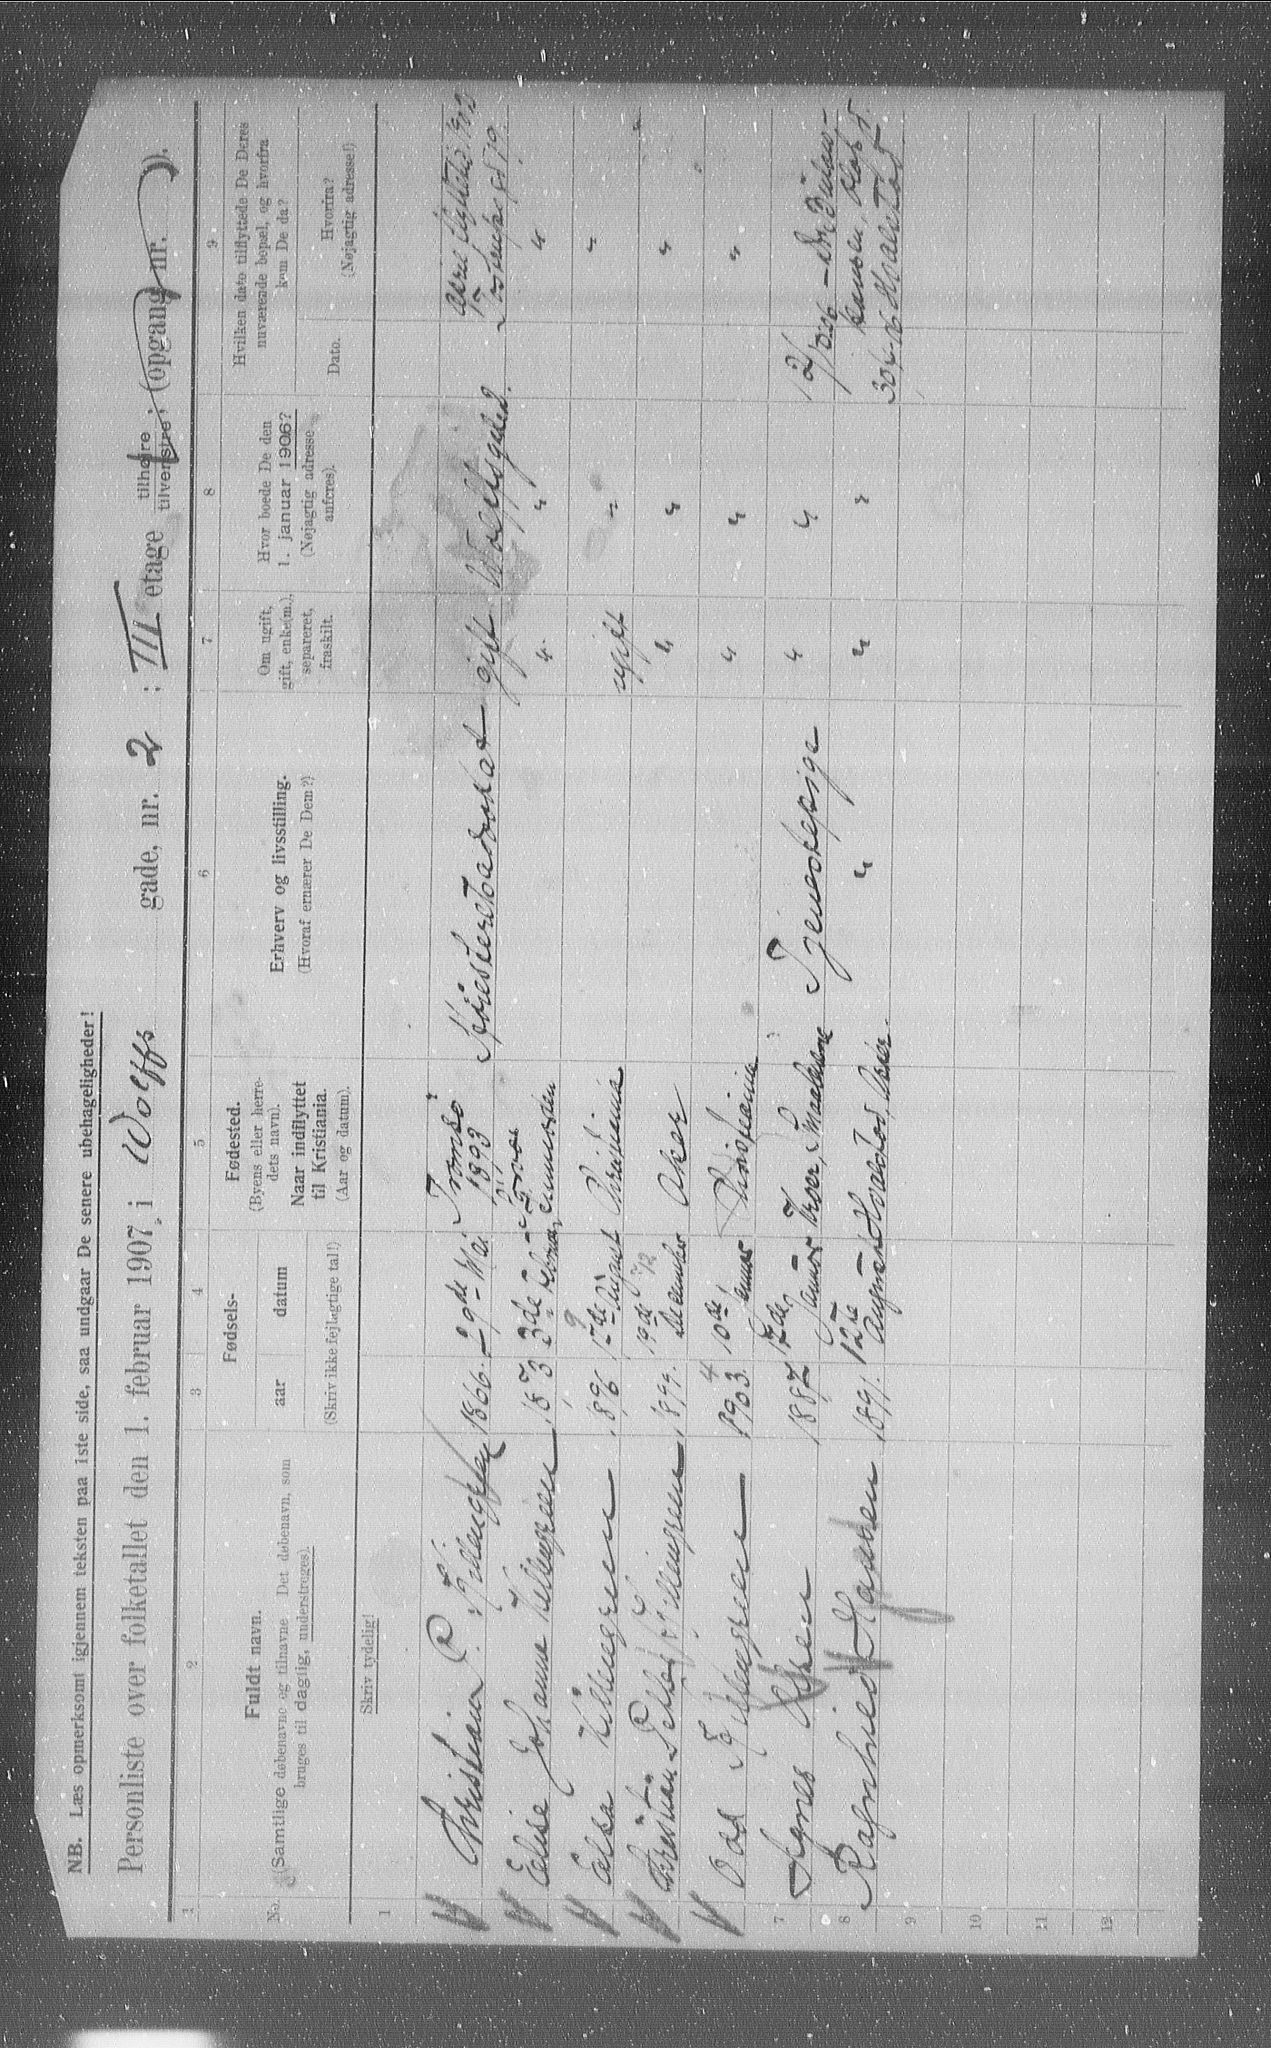 NB. Læs opmerksomt igjennem teksten paa 1ste side, saa undgaar De senere ubehageligheder!
Personliste over folketallet den 1. februar 1907 i Wolffs gade, nr. 2 : III etage tilhøire tilvenstre ; (opgang nr. ).
1 2 3 4 5 6 7 8 9
No.
Fuldt navn.
(Samtlige døbenavne og tilnavne Det døbenavn, som
bruges til daglig, understreges).
Skriv tydelig!
Fødsels-
aar datum
(Skriv ikke fejlagtige tal!)
Fødested.
(Byens eller herre-
dets navn).
Naar indflyttet
til Kristiania.
(Aar og datum).
Erhverv og livsstilling.
(Hvoraf ernærer De Dem?)
Om ugift,
gift, enke(m.),
separeret,
fraskilt.
Hvor boede De den
1. januar 1906?
(Nøjagtig adresse
anføres).
Hvilken dato tilflyttede De Deres
nuværende bopæl, og hvorfra
kom De da?
Dato.
Hvorfra?
(Nøjagtig adresse!)
1
Christian P. 1866. 29de Mai Tromsø 1893 Høiesteretsadvokat gift Wolffsgade 2.
Elise Johanne Killengreen 1873 3de Februar " "
Elsa Killengreen 1896 August Kristiania ugift "
Christian Killengreen 1899. 19de December Aker " "
Odd Killengreen 1903. 10de Januar Kristiania " "
7 Agnes Olsen 1887 17de Januar Tjenestepige " "
8 Ragnhild Hansen 1891. 12te August Aker. " " "
9
10
11
12